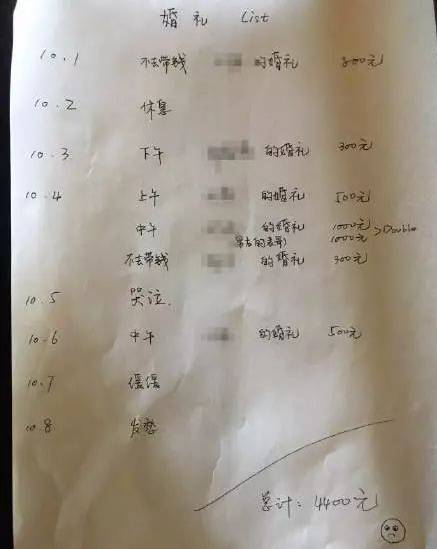 婚礼 List
10.1 不去带钱 的婚礼 800元
10.2 休息
10.3 下午 的婚礼 300元
10.4 上午 的婚礼 500元
中午 的婚礼 1000元
1000元 >Double
不去带钱 的婚礼 300元
10.5 哭泣.
10.6 中午 的婚礼 500元
10.7 缓缓
10.8 发愁
总计: 4400元